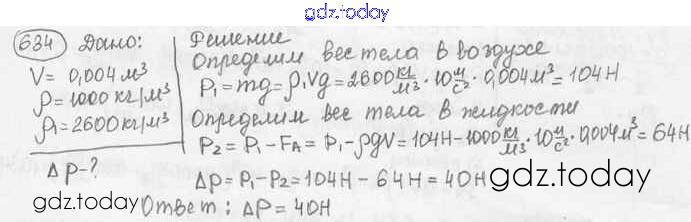 gdz.today
634 Дано:
V = 0,004 м³
ρ = 1000 кг/м³
ρ₁ = 2600 кг/м³
ΔP - ?
Решение
Определим вес тела в воздухе
P₁ = mg = ρ₁Vg = 2600 кг/м³ · 10 м/с² · 0,004 м³ = 104 Н
Определим вес тела в жидкости
P₂ = P₁ - Fᴀ = P₁ - ρgV = 104 Н - 1000 кг/м³ · 10 м/с² · 0,004 м³ = 64 Н
ΔP = P₁ - P₂ = 104 Н - 64 Н = 40 Н
Ответ: ΔP = 40 Н
gdz.today
gdz.today